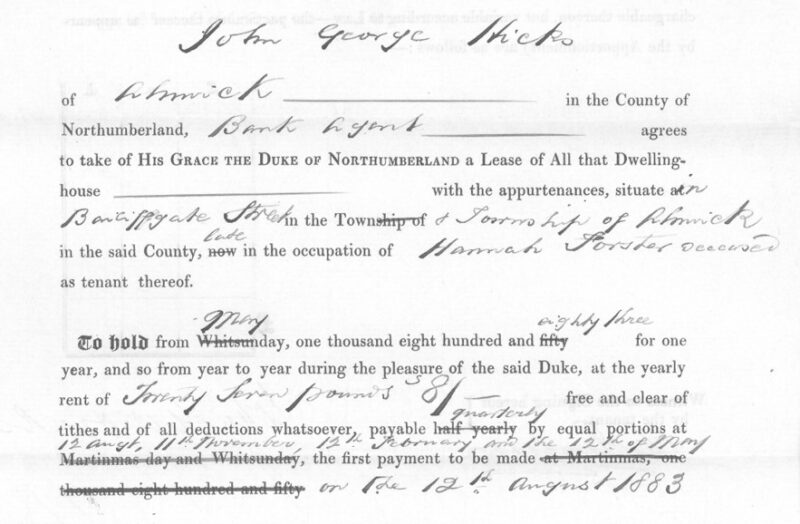 John George Hicks
of Alnwick in the County of
Northumberland, Bank Agent agrees
to take of HIS GRACE THE DUKE OF NORTHUMBERLAND a Lease of All that Dwelling-
house with the appurtenances, situate in
Bailiffgate Street in the Township of & Township of Alnwick
late
in the said County, now in the occupation of Hannah Forster deceased
as tenant thereof.
May eighty three
To hold from Whitsunday, one thousand eight hundred and fifty for one
year, and so from year to year during the pleasure of the said Duke, at the yearly
rent of Twenty Seven pounds 8/ free and clear of
quarterly
tithes and of all deductions whatsoever, payable half yearly by equal portions at
12 Augt, 11th November, 12th February, and the 12th of May
Martinmas day and Whitsunday, the first payment to be made at Martinmas, one
thousand eight hundred and fifty on the 12th August 1883